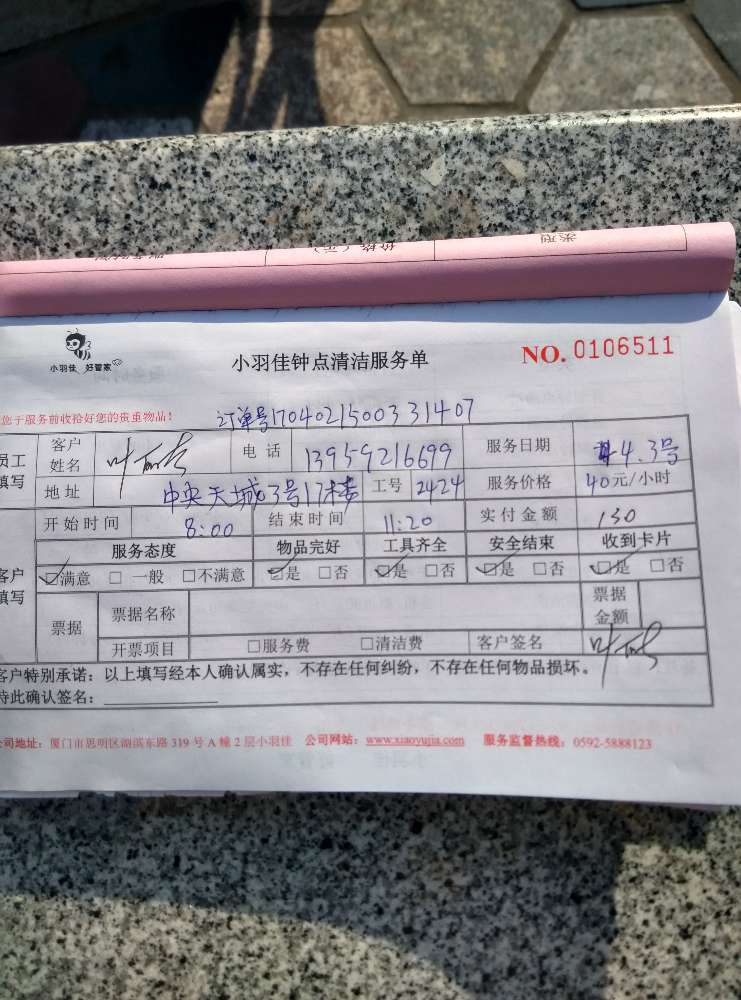 类型
价格（元）
小羽佳 好管家
小羽佳钟点清洁服务单
NO. 0106511
您于服务前收拾好您的贵重物品！
订单号17040215003 31407
员工填写
客户姓名 叶 电话 13959216699 服务日期 4.3号
地址 中央天城3号17楼 工号 2424 服务价格 40元/小时
开始时间 8:00 结束时间 11:20 实付金额 130
客户填写
服务态度 物品完好 工具齐全 安全结束 收到卡片
☑满意 □一般 □不满意 ☑是 □否 ☑是 □否 ☑是 □否 ☑是 □否
票据 票据名称 票据金额
开票项目 □服务费 □清洁费 客户签名 叶
客户特别承诺：以上填写经本人确认属实，不存在任何纠纷，不存在任何物品损坏。
特此确认签名：
公司地址：厦门市思明区湖滨东路 319 号 A 幢 2 层小羽佳 公司网站：www.xiaoyujia.com 服务监督热线：0592-5888123